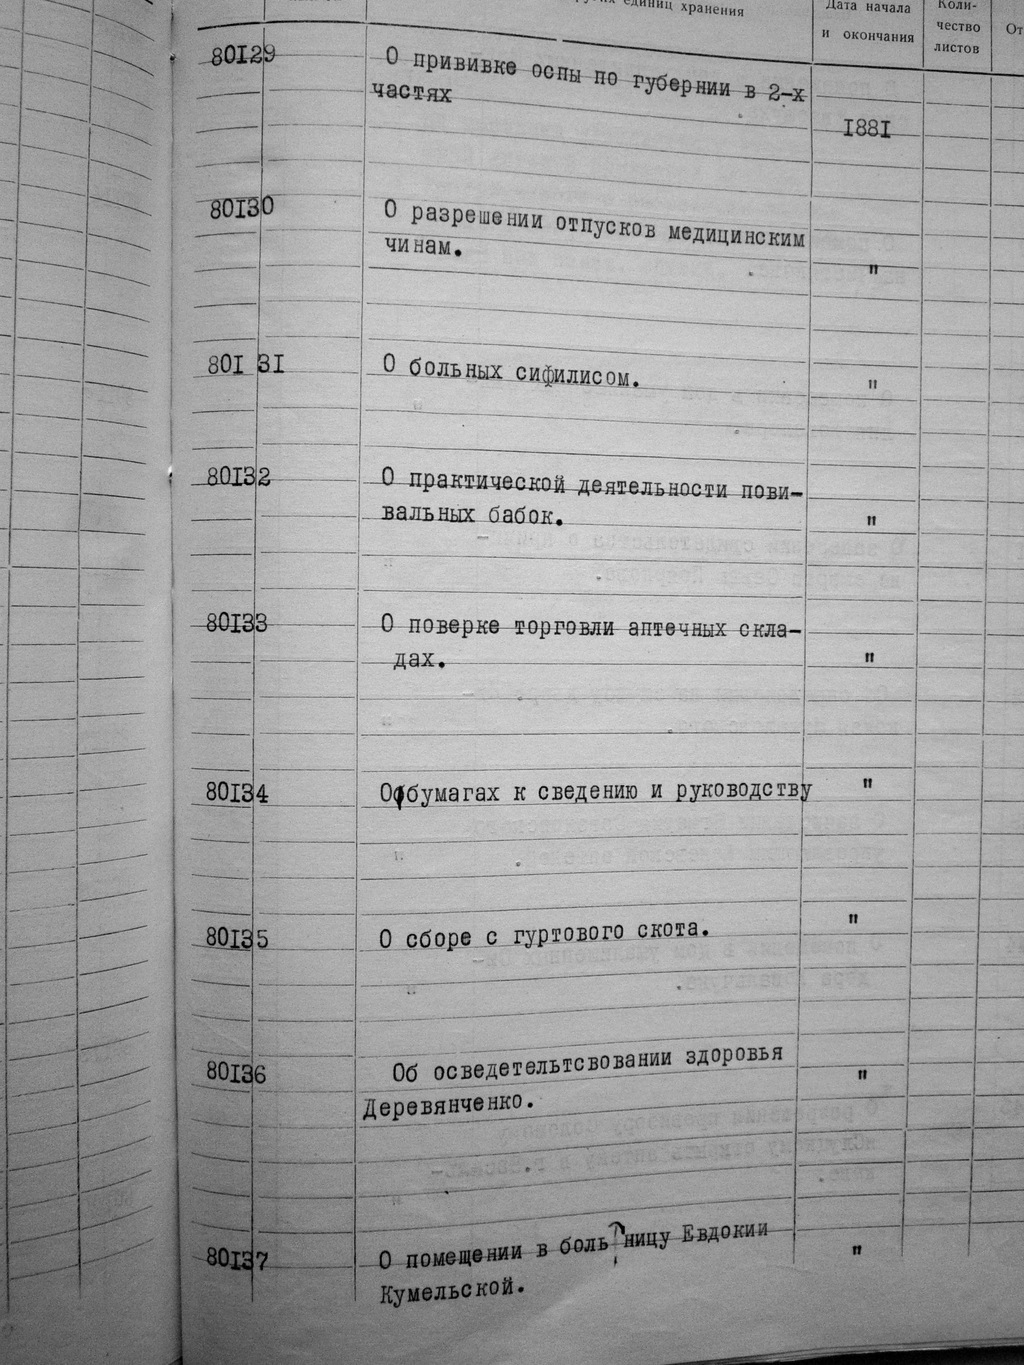 единиц хранения
Дата начала
и окончания
Коли-
чество
листов
От
80129
О прививке оспы по губернии в 2-х
частях
1881
80130
О разрешении отпусков медицинским
чинам.
"
801 31
О больных сифилисом.
"
80132
О практической деятельности пови-
вальных бабок.
"
80133
О поверке торговли аптечных скла-
дах.
"
80134
О бумагах к сведению и руководству
"
80135
О сборе с гуртового скота.
"
80136
Об осведетельтсвовании здоровья
Деревянченко.
"
80137
О помещении в больницу Евдокии
Кумельской.
"